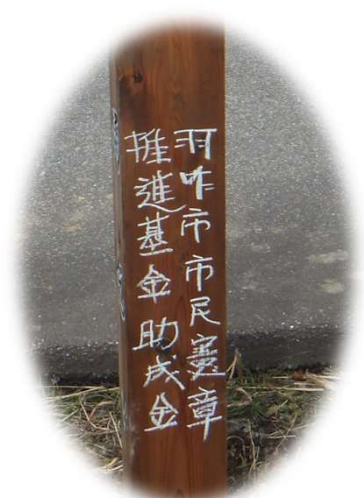 羽咋市市民憲章
推進基金助成金